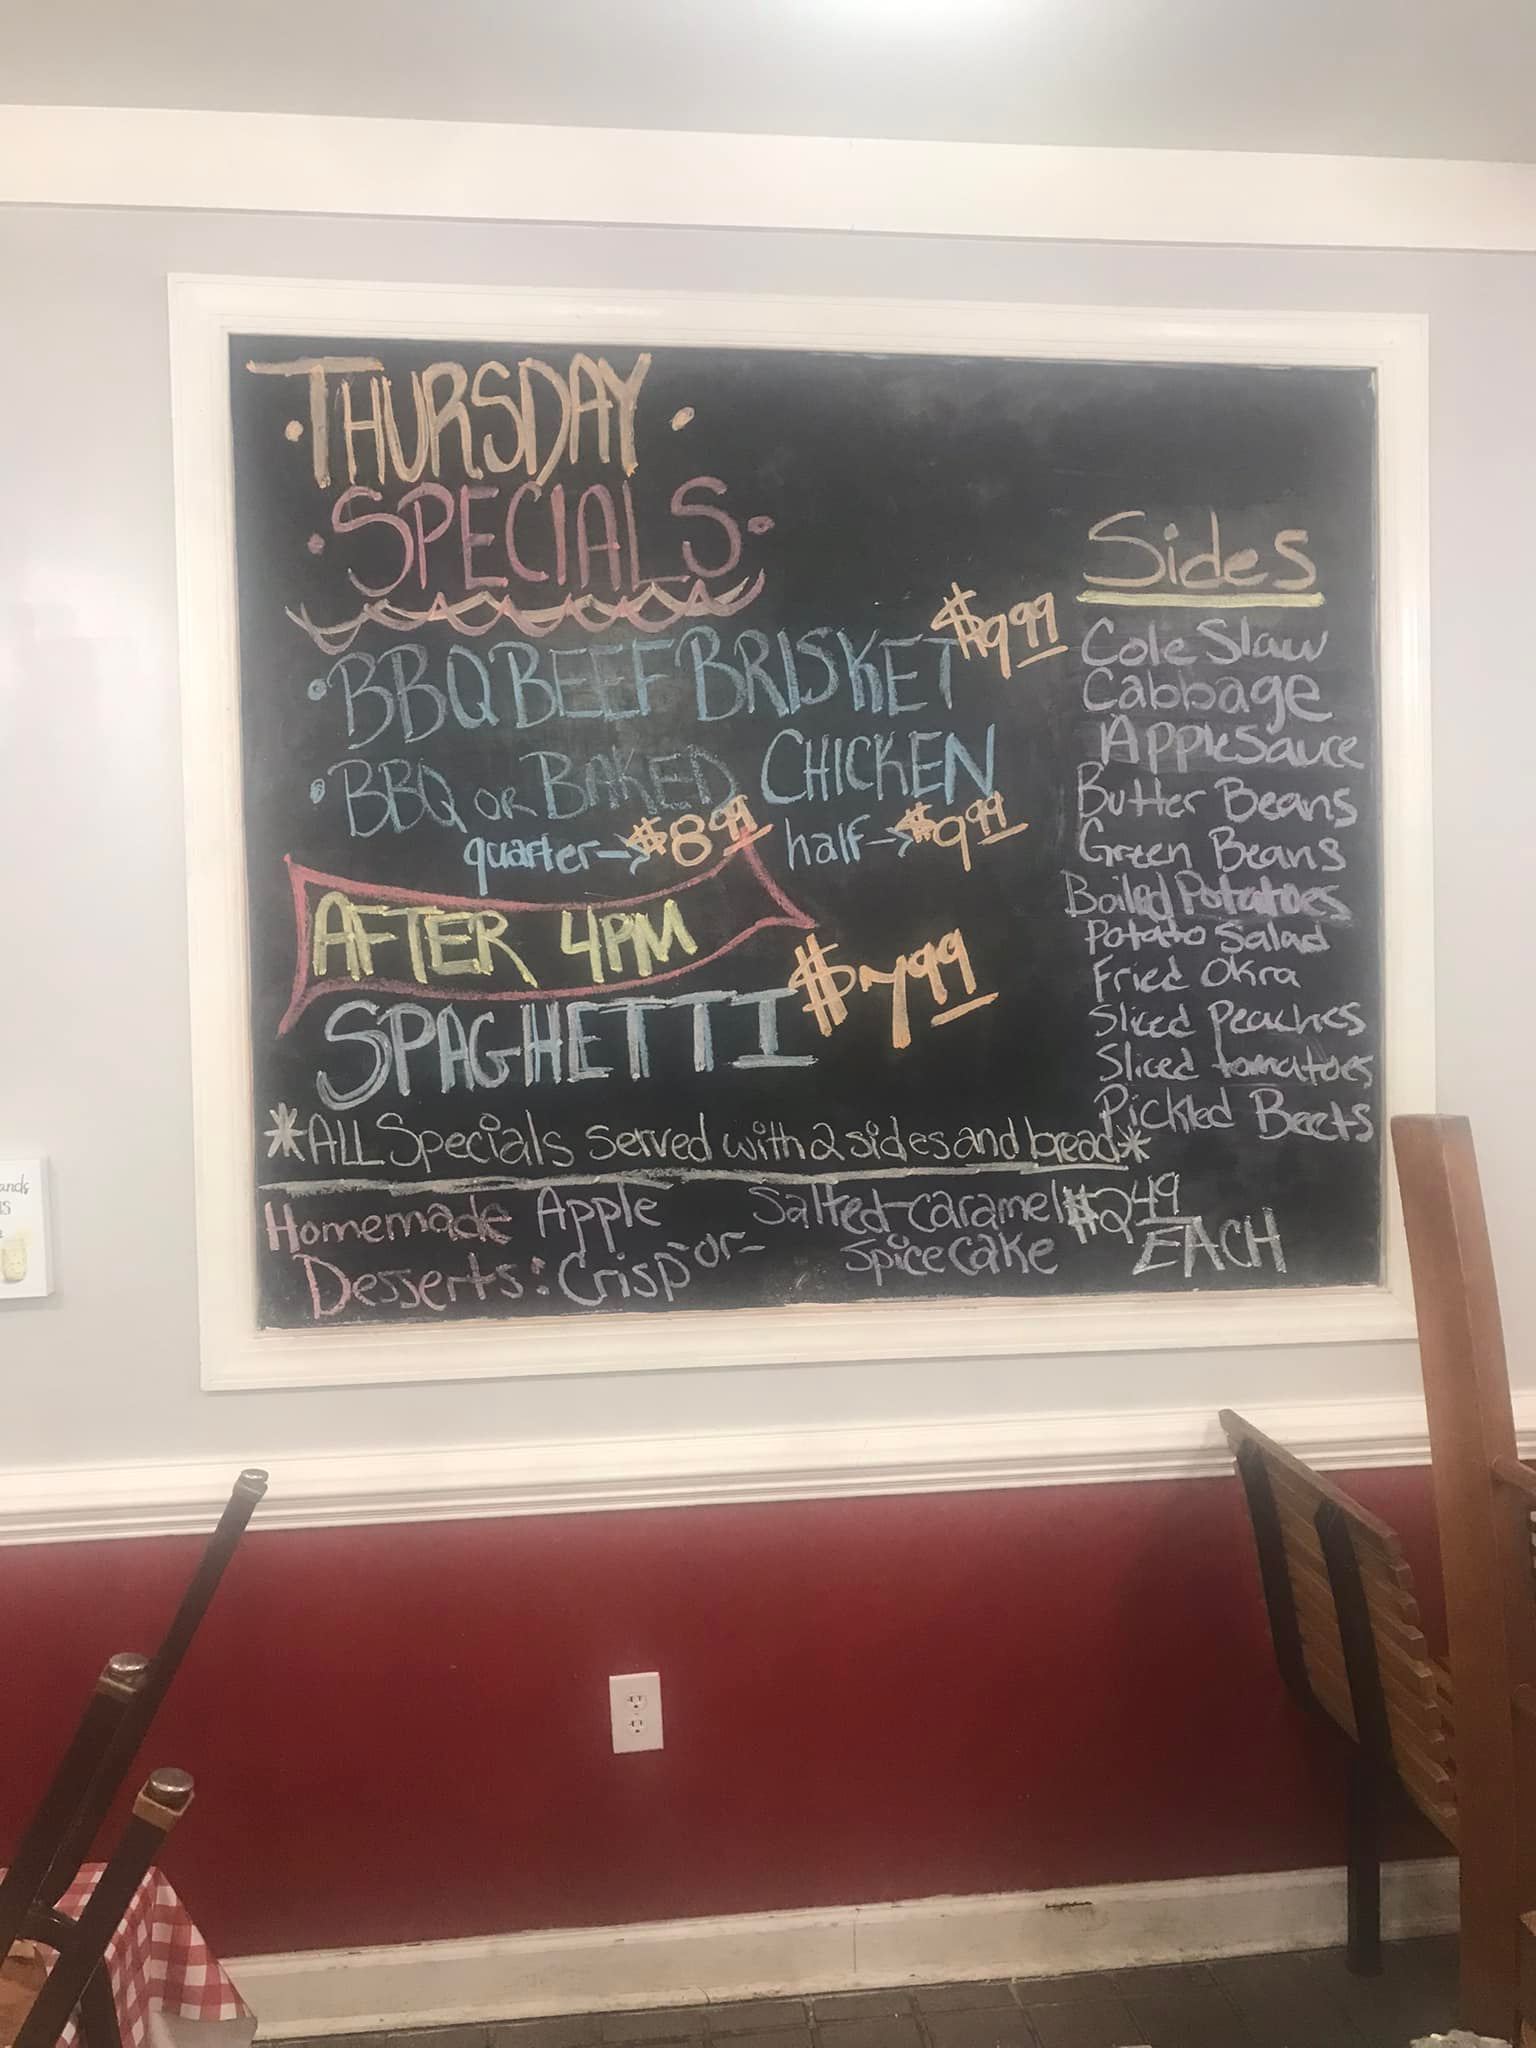 ·THURSDAY·
·SPECIALS·
·BBQ BEEF BRISKET $9.99
·BBQ OR BAKED CHICKEN
quarter→$8.99 half→$9.99
AFTER 4PM
SPAGHETTI $7.99
*ALL Specials served with 2 sides and bread*
Homemade Desserts: Apple Crisp -or- Salted-caramel Spice Cake $2.49 EACH
Sides
Cole Slaw
Cabbage
AppleSauce
Butter Beans
Green Beans
Boiled Potatoes
Potato Salad
Fried Okra
Sliced Peaches
Sliced tomatoes
Pickled Beets